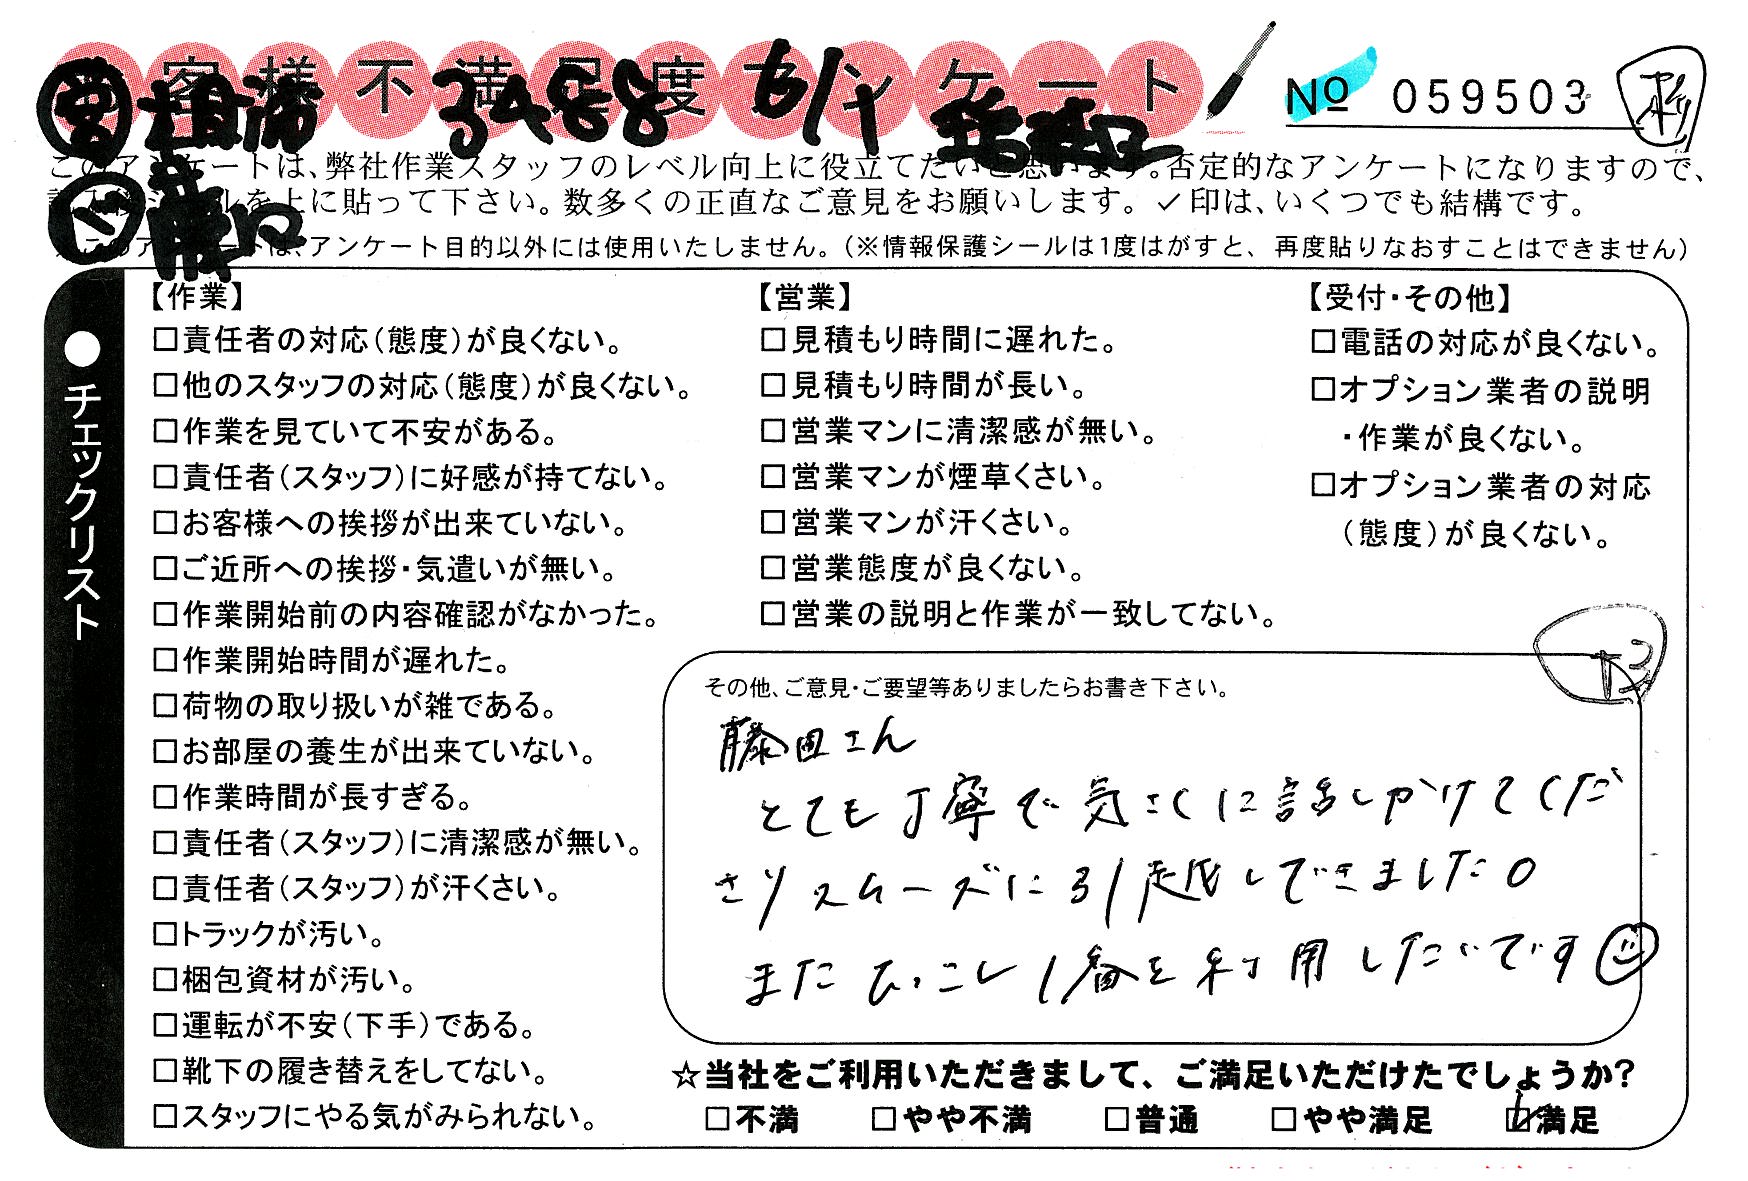 お客様不満足度アンケート
3488 6/1
№ 059503
このアンケートは、弊社作業スタッフのレベル向上に役立てたいと思います。否定的なアンケートになりますので、
シールを上に貼って下さい。数多くの正直なご意見をお願いします。✓印は、いくつでも結構です。
※このアンケートは、アンケート目的以外には使用いたしません。(※情報保護シールは1度はがすと、再度貼りなおすことはできません)
●チェックリスト
【作業】
□責任者の対応(態度)が良くない。
□他のスタッフの対応(態度)が良くない。
□作業を見ていて不安がある。
□責任者(スタッフ)に好感が持てない。
□お客様への挨拶が出来ていない。
□ご近所への挨拶・気遣いが無い。
□作業開始前の内容確認がなかった。
□作業開始時間が遅れた。
□荷物の取り扱いが雑である。
□お部屋の養生が出来ていない。
□作業時間が長すぎる。
□責任者(スタッフ)に清潔感が無い。
□責任者(スタッフ)が汗くさい。
□トラックが汚い。
□梱包資材が汚い。
□運転が不安(下手)である。
□靴下の履き替えをしてない。
□スタッフにやる気がみられない。
【営業】
□見積もり時間に遅れた。
□見積もり時間が長い。
□営業マンに清潔感が無い。
□営業マンが煙草くさい。
□営業マンが汗くさい。
□営業態度が良くない。
□営業の説明と作業が一致してない。
【受付・その他】
□電話の対応が良くない。
□オプション業者の説明
・作業が良くない。
□オプション業者の対応
(態度)が良くない。
その他、ご意見・ご要望等ありましたらお書き下さい。
藤田さん
とても丁寧で気さくに話しかけてくだ
さりスムーズに引越しできました。
またひっこし1番を利用したいです
☆当社をご利用いただきまして、ご満足いただけたでしょうか?
□不満 □やや不満 □普通 □やや満足 ☑満足